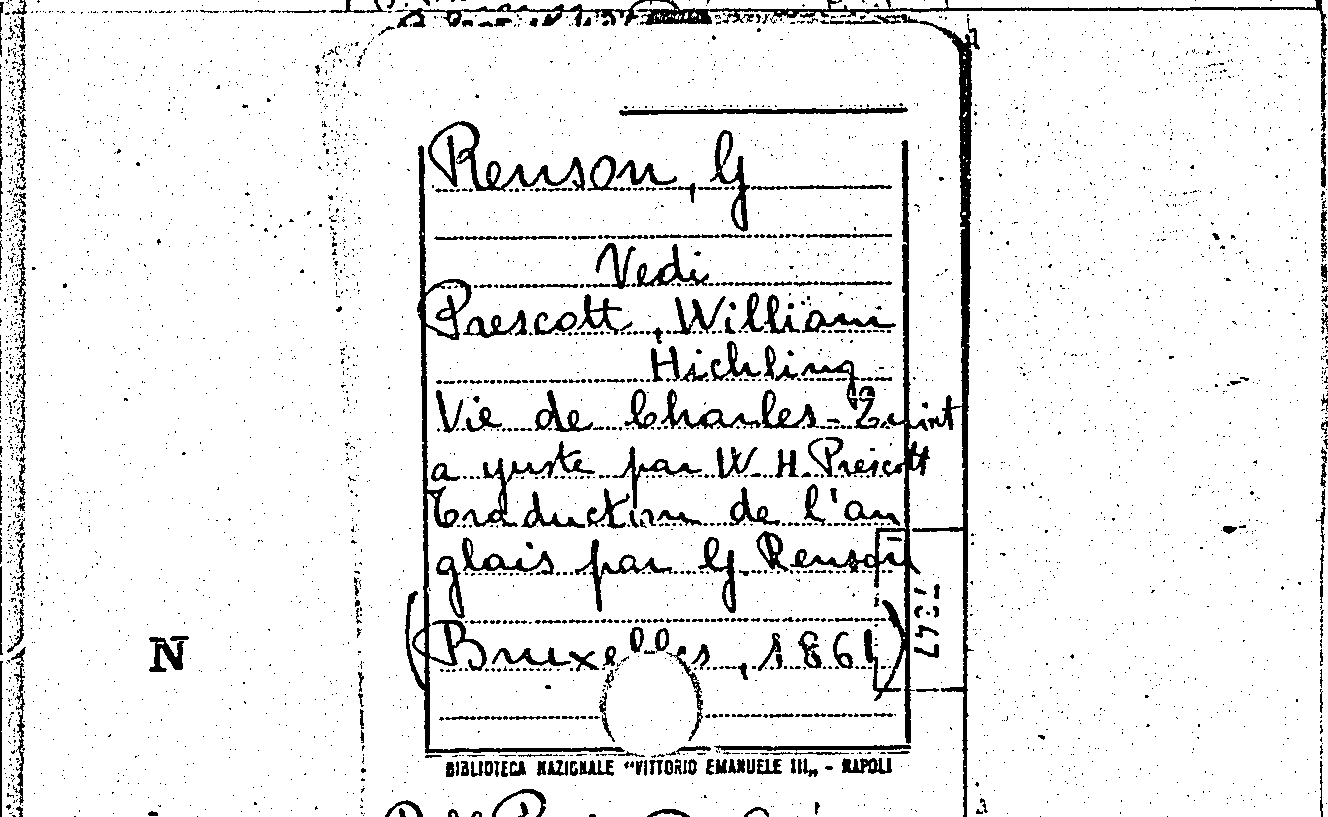 Renson, G
Vedi
Prescott, William
Hichling
Vie de Charles-Quint
a yuste par W. H. Prescott
traduction de l'an
glais par G. Renson
(Bruxelles, 1861)
N
BIBLIOTECA NAZIONALE "VITTORIO EMANUELE III„ - NAPOLI